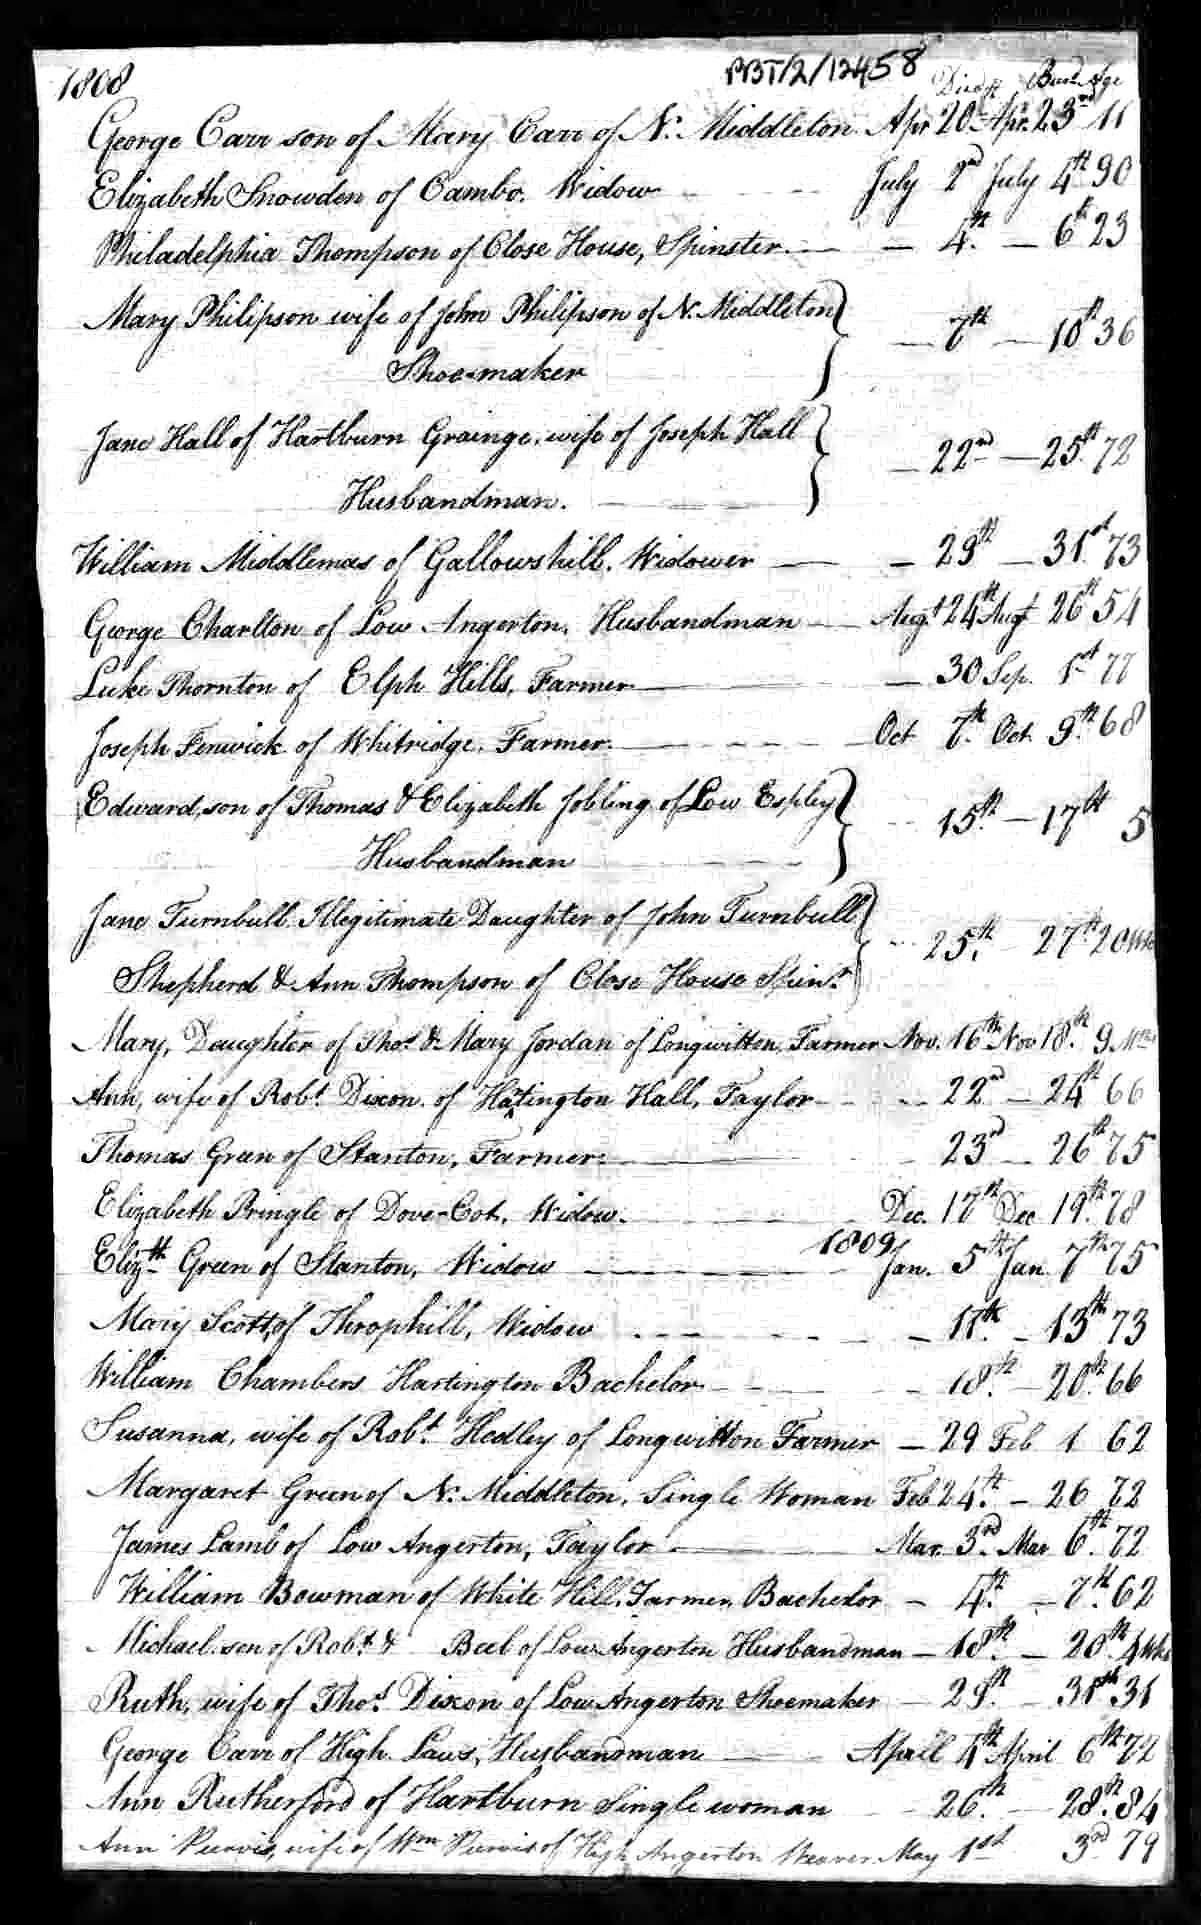 PBT/2/12458
1808 Died Bur.d Age
George Carr son of Mary Carr of N. Middleton Apr. 20 Apr. 23rd 11
Elizabeth Snowden of Cambo. Widow July 2d July 4th 90
Philadelphia Thompson of Close House, Spinster. — — 4th. — 6th 23
Mary Philipson wife of John Philipson of N. Middleton
Shoe-maker — 7th — 10th 36
Jane Hall of Hartburn Grainge. wife of Joseph Hall
Husbandman. — 22nd — 25th 72
William Middlemas of Gallowshill. Widower — — 29th — 31st 73
George Charlton of Low Angerton. Husbandman — Augt 24th Augt 26th 54
Luke Thornton of Elph Hills, Farmer — — 30 Sep. 1st 77
Joseph Fenwick of Whitridge. Farmer. — Oct 7th. Oct. 9th. 68
Edward, son of Thomas & Elizabeth Jobling of Low Espley
Husbandman 15th. — 17th 5
Jane Turnbull Illegitimate Daughter of John Turnbull
Shepherd & Ann Thompson of Close House Spinr. 25th. 27th. 20 Wks
Mary, Daughter of Thos. & Mary Jordan of Longwitton, Farmer Nov. 16th Nov 18th. 9 Mths
Ann, wife of Robt. Dixon of Hatington Hall, Taylor — 22nd — 24th 66
Thomas Green of Stanton, Farmer. — 23rd — 26th 75
Elizabeth Pringle of Dove-Cot. Widow. — Dec. 17th Dec 19th. 78
1809
Elizth Green of Stanton, Widow — Jan. 5th Jan. 7th 75
Mary Scott, of Throphill, Widow — 11th. — 13th 73
William Chambers Hartington Bachelor — — 18th. — 20th. 66
Susanna, wife of Robt. Hedley of Longwitton Farmer — 29 Feb 1 62
Margaret Green of N. Middleton, Single Woman Feb 24th. — 26 72
James Lamb of Low Angerton, Taylor — Mar. 3rd. Mar 6th. 72
William Bowman of White Hill. Farmer, Bachelor — 4th. — 7th. 62
Michael. son of Robt. & Bell of Low Angerton Husbandman — 18th — 20th. 4 Wks
Ruth, wife of Thos. Dixon of Low Angerton Shoemaker — 29th. — 31st 31
George Carr of High Laws, Husbandman — April 4th April 6th 72
Ann Rutherford of Hartburn Single woman 26th. — 28th. 84
Ann Purvis, wife of Wm Purvis of High Angerton Weaver May 1st 3rd 79